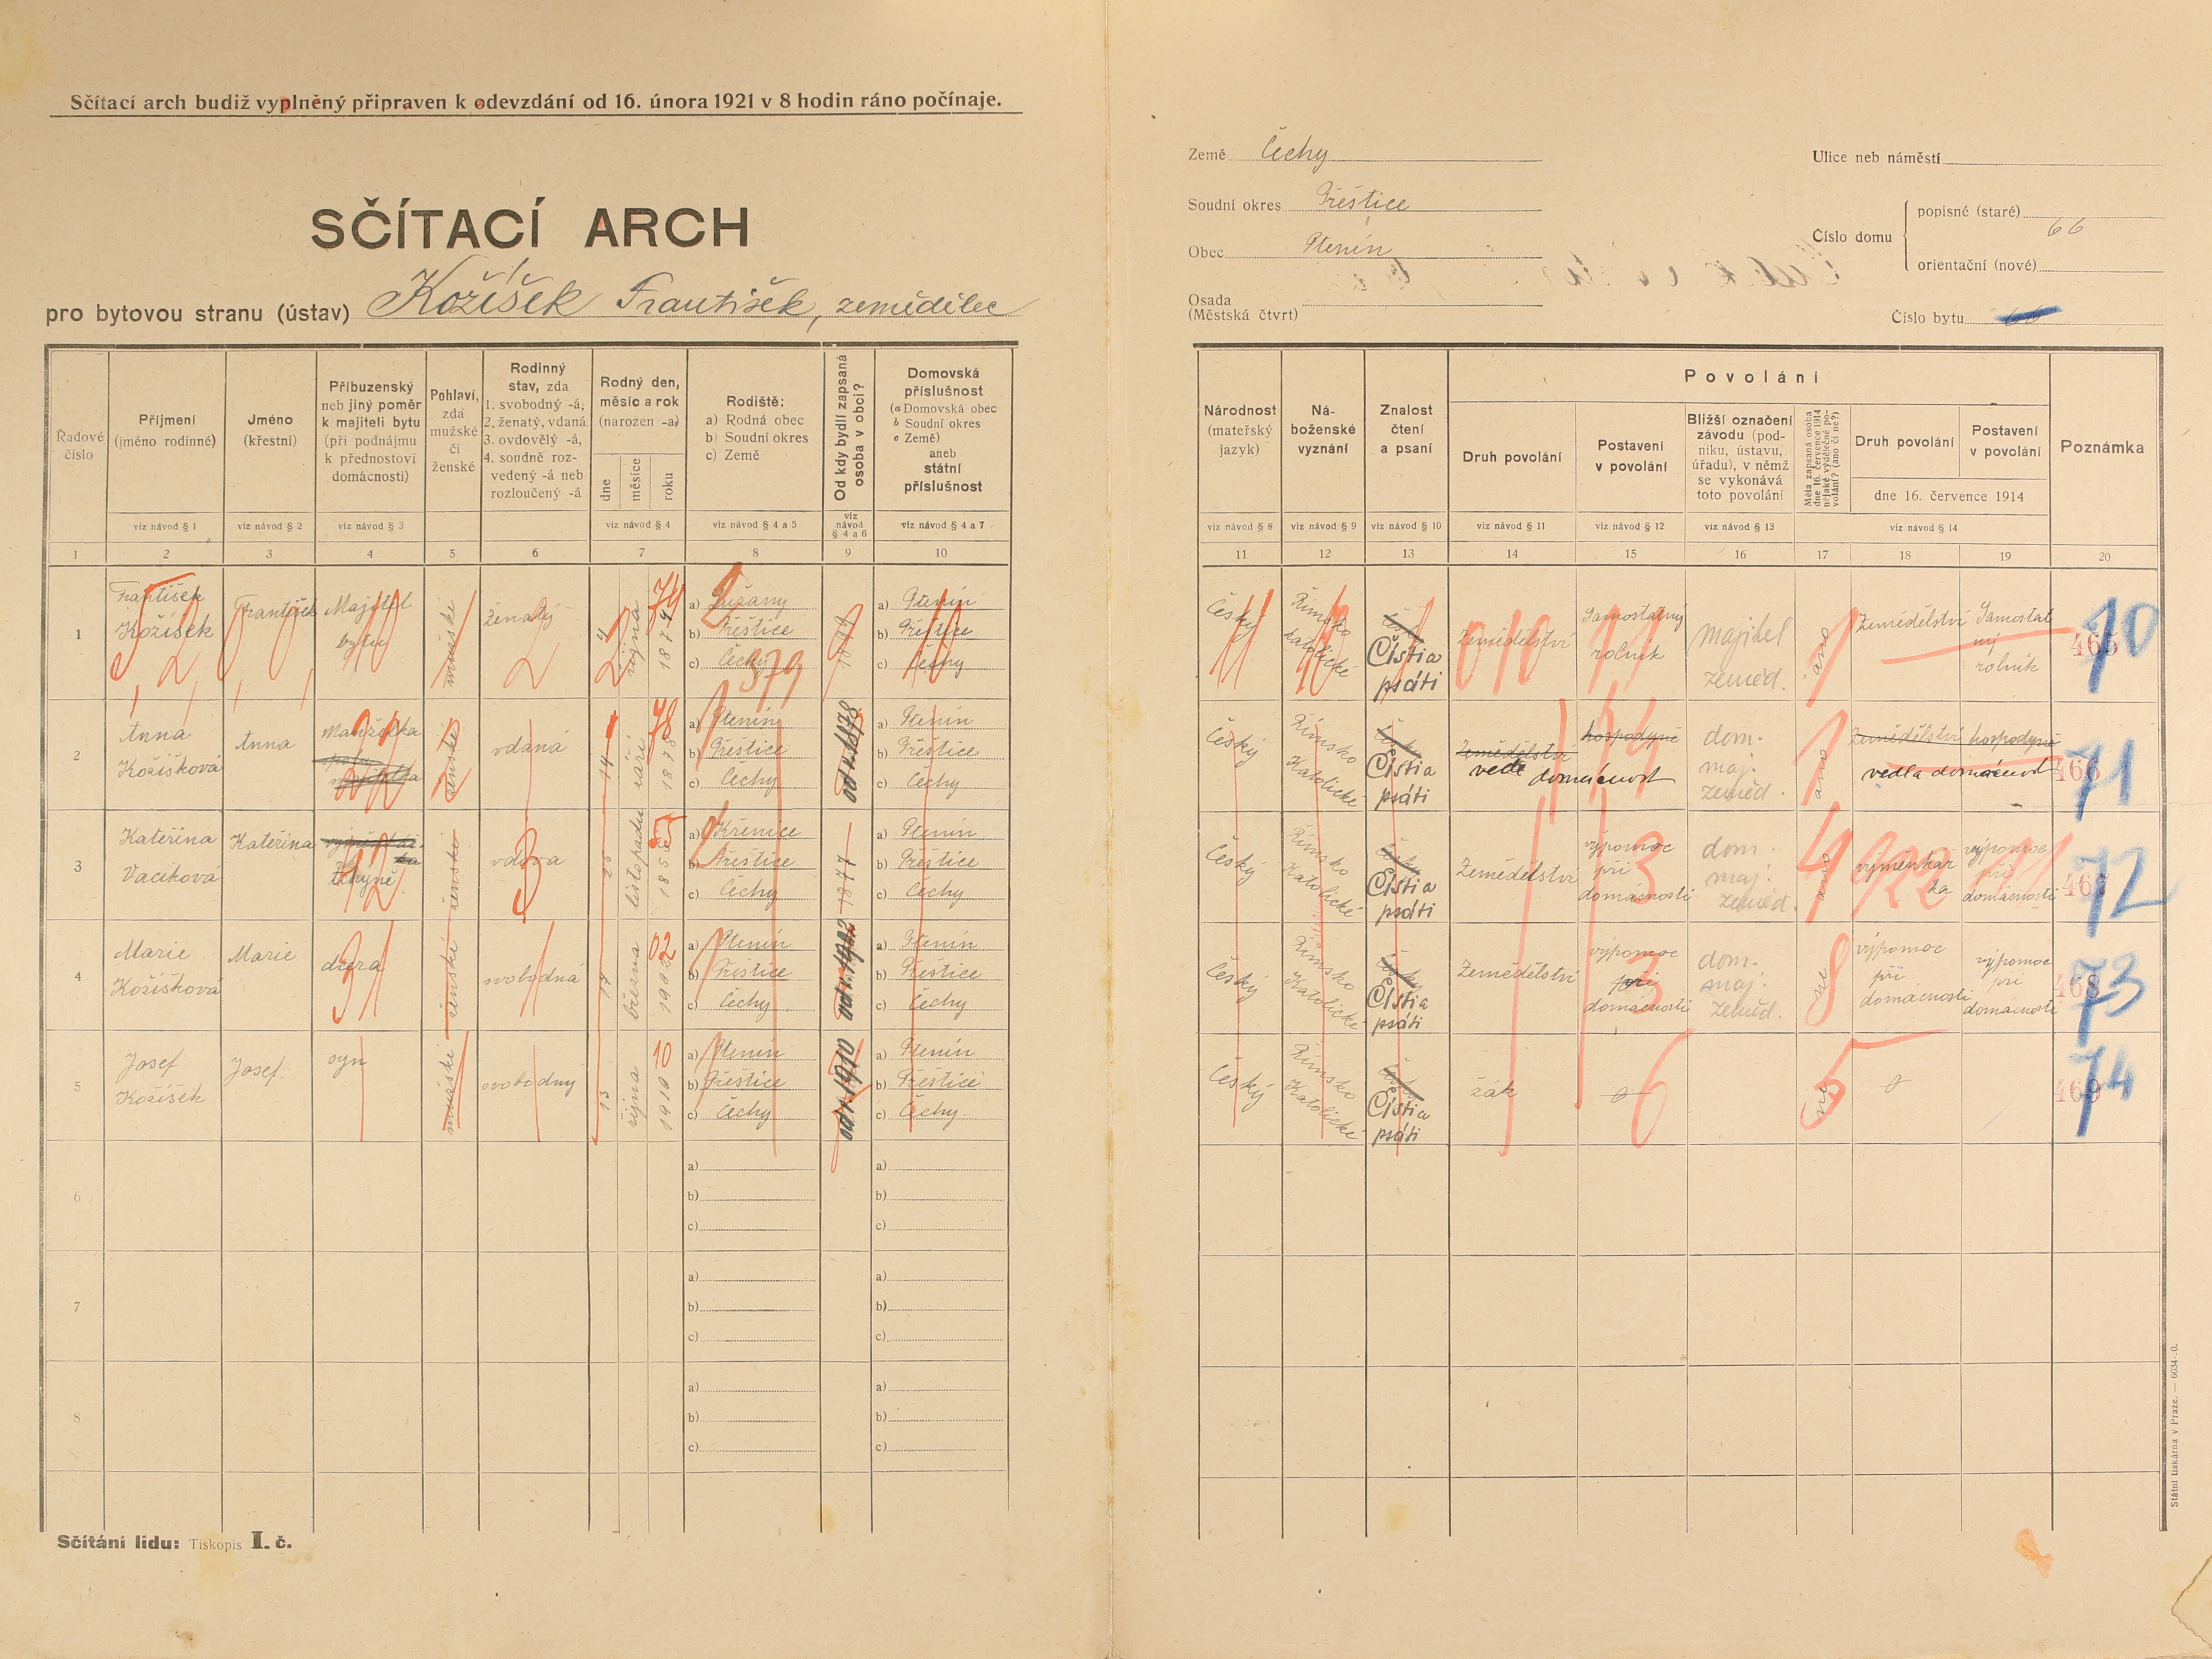 Sčítací arch budiž vyplněný připraven k odevzdání od 16. února 1921 v 8 hodin ráno počínaje.
SČÍTACÍ ARCH
pro bytovou stranu (ústav) Kožíšek František, zemědělec
Země Čechy
Soudní okres Přeštice
Obec Ptenín
Osada
(Městská čtvrt)
Ulice neb náměstí
Číslo domu
popisné (staré) 66
orientační (nové)
Číslo bytu
Řadové číslo
Příjmení
(jméno rodinné)
Jméno
(křestní)
Příbuzenský
neb jiný poměr
k majiteli bytu
(při podnájmu
k přednostovi
domácnosti)
Pohlaví,
zda
mužské
či
ženské
Rodinný
stav, zda
1. svobodný -á,
2. ženatý, vdaná
3. ovdovělý -á,
4. soudně roz-
vedený -á neb
rozloučený -á
Rodný den,
měsíc a rok
(narozen -a)
dne
měsíce
roku
Rodiště:
a) Rodná obec
b) Soudní okres
c) Země
Od kdy bydlí zapsaná
osoba v obci?
Domovská
příslušnost
(a Domovská obec
b Soudní okres
c Země)
aneb
státní
příslušnost
viz návod § 1
viz návod § 2
viz návod § 3
viz návod § 4
viz návod § 4 a 5
viz
návod
§ 4 a 6
viz návod § 4 a 7
1 2 3 4 5 6 7 8 9 10
Národnost
(mateřský
jazyk)
Ná-
boženské
vyznání
Znalost
čtení
a psaní
Povolání
Druh povolání
Postavení
v povolání
Bližší označení
závodu (pod-
niku, ústavu,
úřadu), v němž
se vykonává
toto povolání
Měla zapsaná osoba
dne 16. července 1914
nějaké výdělečné po-
volání? (ano či ne?)
Druh povolání
Postavení
v povolání
dne 16. července 1914
Poznámka
viz návod § 8
viz návod § 9
viz návod § 10
viz návod § 11
viz návod § 12
viz návod § 13
viz návod § 14
11 12 13 14 15 16 17 18 19 20
1
František
Kožíšek
František
Majitel
bytu
mužské
ženatý
4
října
1874
74
a) Lužany
b) Přeštice
c) Čechy
379
a) Ptenín
b) Přeštice
c) Čechy
Český
Římsko
katolické
Čísti a
psáti
Zemědělství
010
Samostatný
rolník
majitel
zeměd.
ano
Zemědělství
Samostat
ný
rolník
465
70
2
Anna
Kožíšková
Anna
Manželka
ženské
vdaná
14
září
1878
78
a) Ptenín
b) Přeštice
c) Čechy
od n. 1878
a) Ptenín
b) Přeštice
c) Čechy
Český
Římsko
Katolické
Čísti a
psáti
Zemědělství
vede domácnost
hospodyně
dom.
maj.
zeměd.
ano
Zemědělství hospodyně
vedla domácnost
466
71
3
Kateřina
Vacíková
Kateřina
tchyně
12
ženské
vdova
3
listopadu
a) Křenice
b) Přeštice
c) Čechy
1877
a) Ptenín
b) Přeštice
c) Čechy
Český
Římsko
Katolické
Čísti a
psáti
Zemědělství
výpomoc
při
domácnosti
3
dom.
maj.
zeměd.
ano
4
výmenkář
ka
922
výpomoc
při
domácnosti
72
4
Marie
Kožíšková
Marie
dcera
31
ženské
svobodná
března
1902
02
a) Ptenín
b) Přeštice
c) Čechy
od n. 1902
a) Ptenín
b) Přeštice
c) Čechy
Český
Římsko
Katolické
Čísti a
psáti
Zemědělství
výpomoc
při
domácnosti
3
dom.
maj.
zeměd.
ne
8
výpomoc
při
domácnosti
výpomoc
při
domácnosti
468
73
5
Josef
Kožíšek
Josef
syn
mužské
svobodný
13
října
1910
10
a) Ptenín
b) Přeštice
c) Čechy
od n. 1910
a) Ptenín
b) Přeštice
c) Čechy
Český
Římsko
Katolické
Čísti a
psáti
žák
6
ne
5
469
74
6
a) a)
b) b)
c) c)
7
a) a)
b) b)
c) c)
8
a) a)
b) b)
c) c)
Sčítání lidu: Tiskopis I. č.
Státní tiskárna v Praze. — 6034-.0.